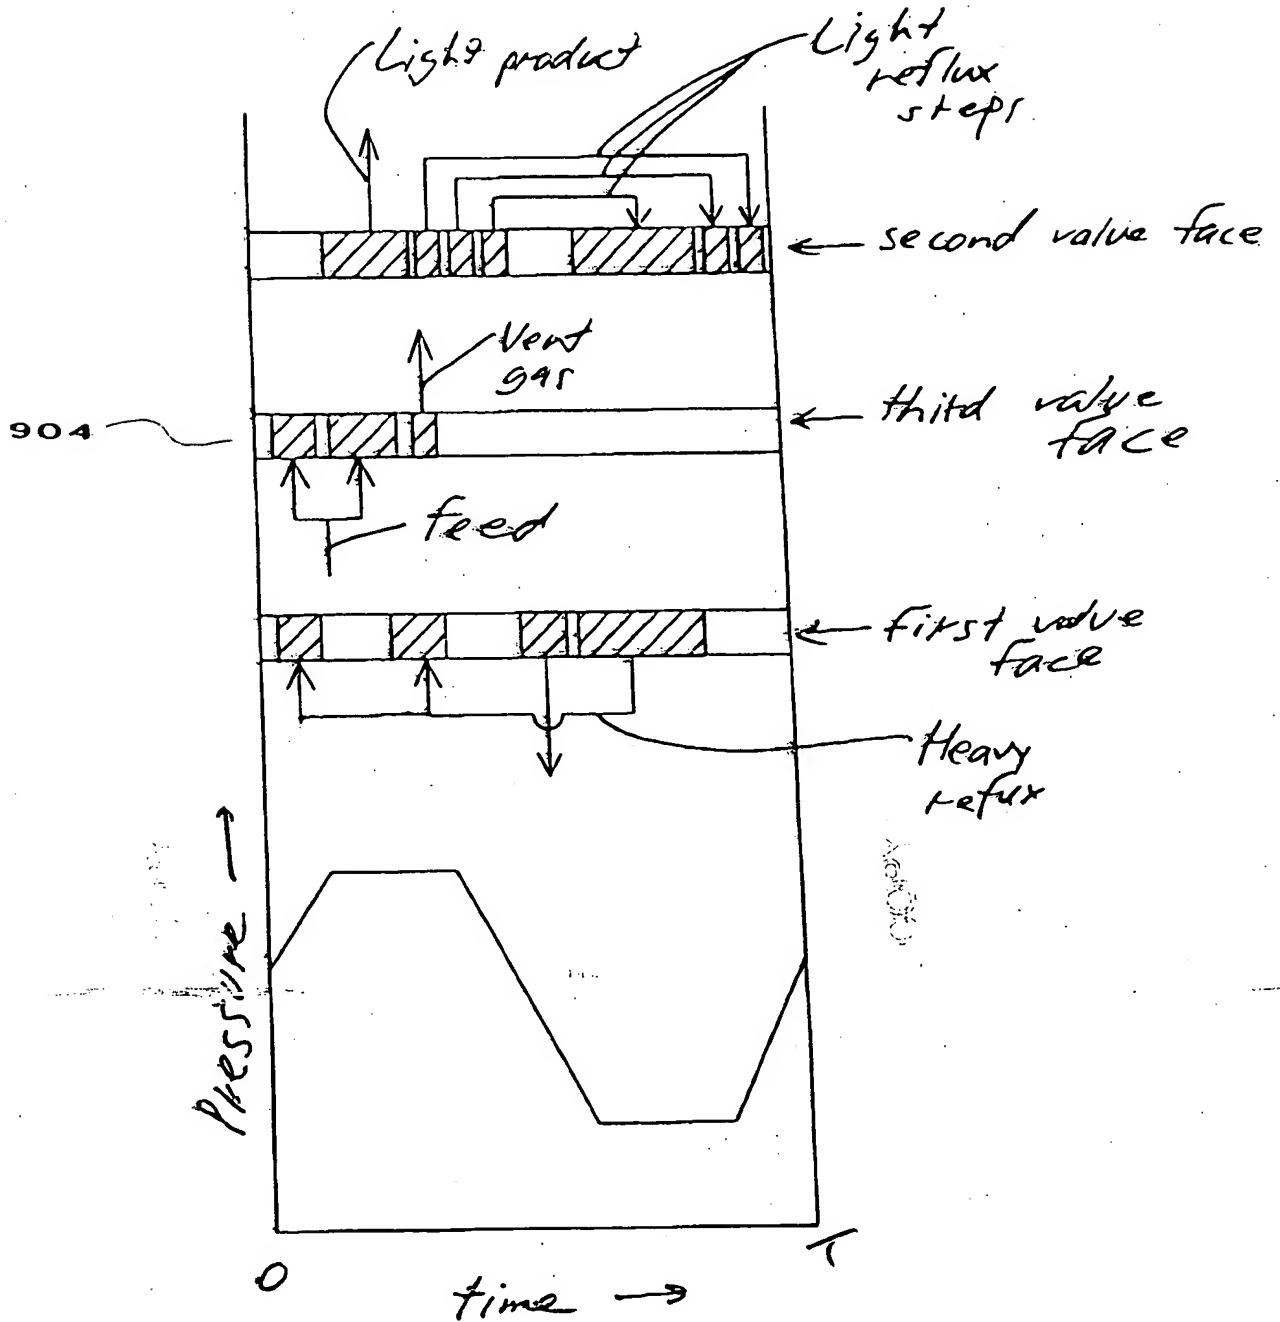 Light product
Light
reflux
steps
second valve face
Vent
gas
third valve
face
904
feed
first valve
face
Heavy
reflux
Pressure →
0
T
time →